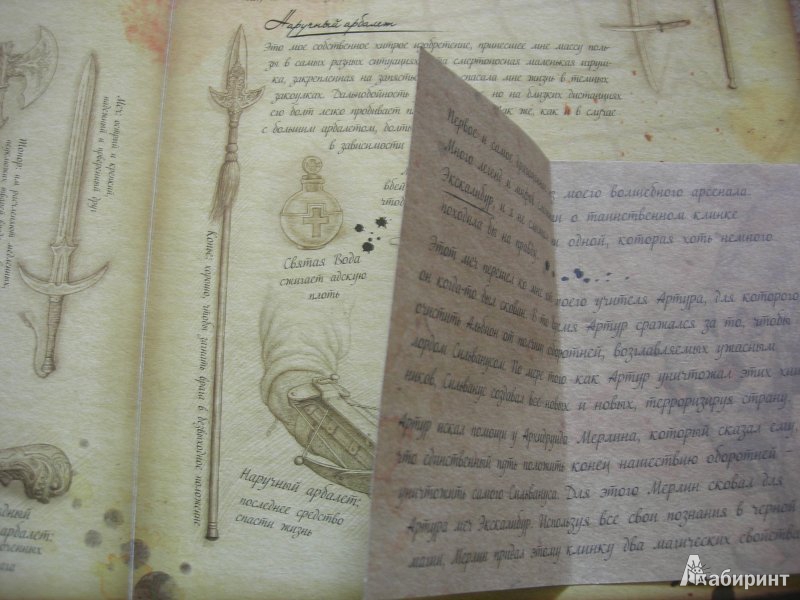 Наручный арбалет
Это мое собственное хитрое изобретение, принесшее мне массу поль-
зы в самых разных ситуациях. Эта смертоносная маленькая игруш-
ка, закрепленная на запястье, спасала мне жизнь в темных
закоулках. Дальнобойность но на близких дистанциях
его болт легко пробивает же, как и в случае
с большим арбалетом, болты
в зависимости
Меч: острый и крепкий
надежный и проверенный друг
Топор:
Копье: хорошо, чтобы загнать врага в безвыходное положение
Святая Вода
сжигает адскую
плоть
Наручный арбалет:
последнее средство
спасти жизнь
арбалет:
Первое и самое моего волшебного арсенала.
Много легенд и мифов о таинственном клинке
Экскалибур, и я не одной, которая хоть немного
походила бы на правду.
Этот меч перешел ко мне от моего учителя Артура, для которого
он когда-то был скован. В то время Артур сражался за то, чтобы
очистить Альбион от полчищ оборотней, возглавляемых ужасным
лордом Сильванусом. По мере того как Артур уничтожал этих хищ-
ников, Сильванус создавал все новых и новых, терроризируя страну.
Артур искал помощи у Архидруида Мерлина, который сказал ему,
что единственный путь положить конец нашествию оборотней -
уничтожить самого Сильвануса. Для этого Мерлин сковал для
Артура меч Экскалибур. Используя все свои познания в черной
магии, Мерлин придал этому клинку два магических свойства
Лабиринт